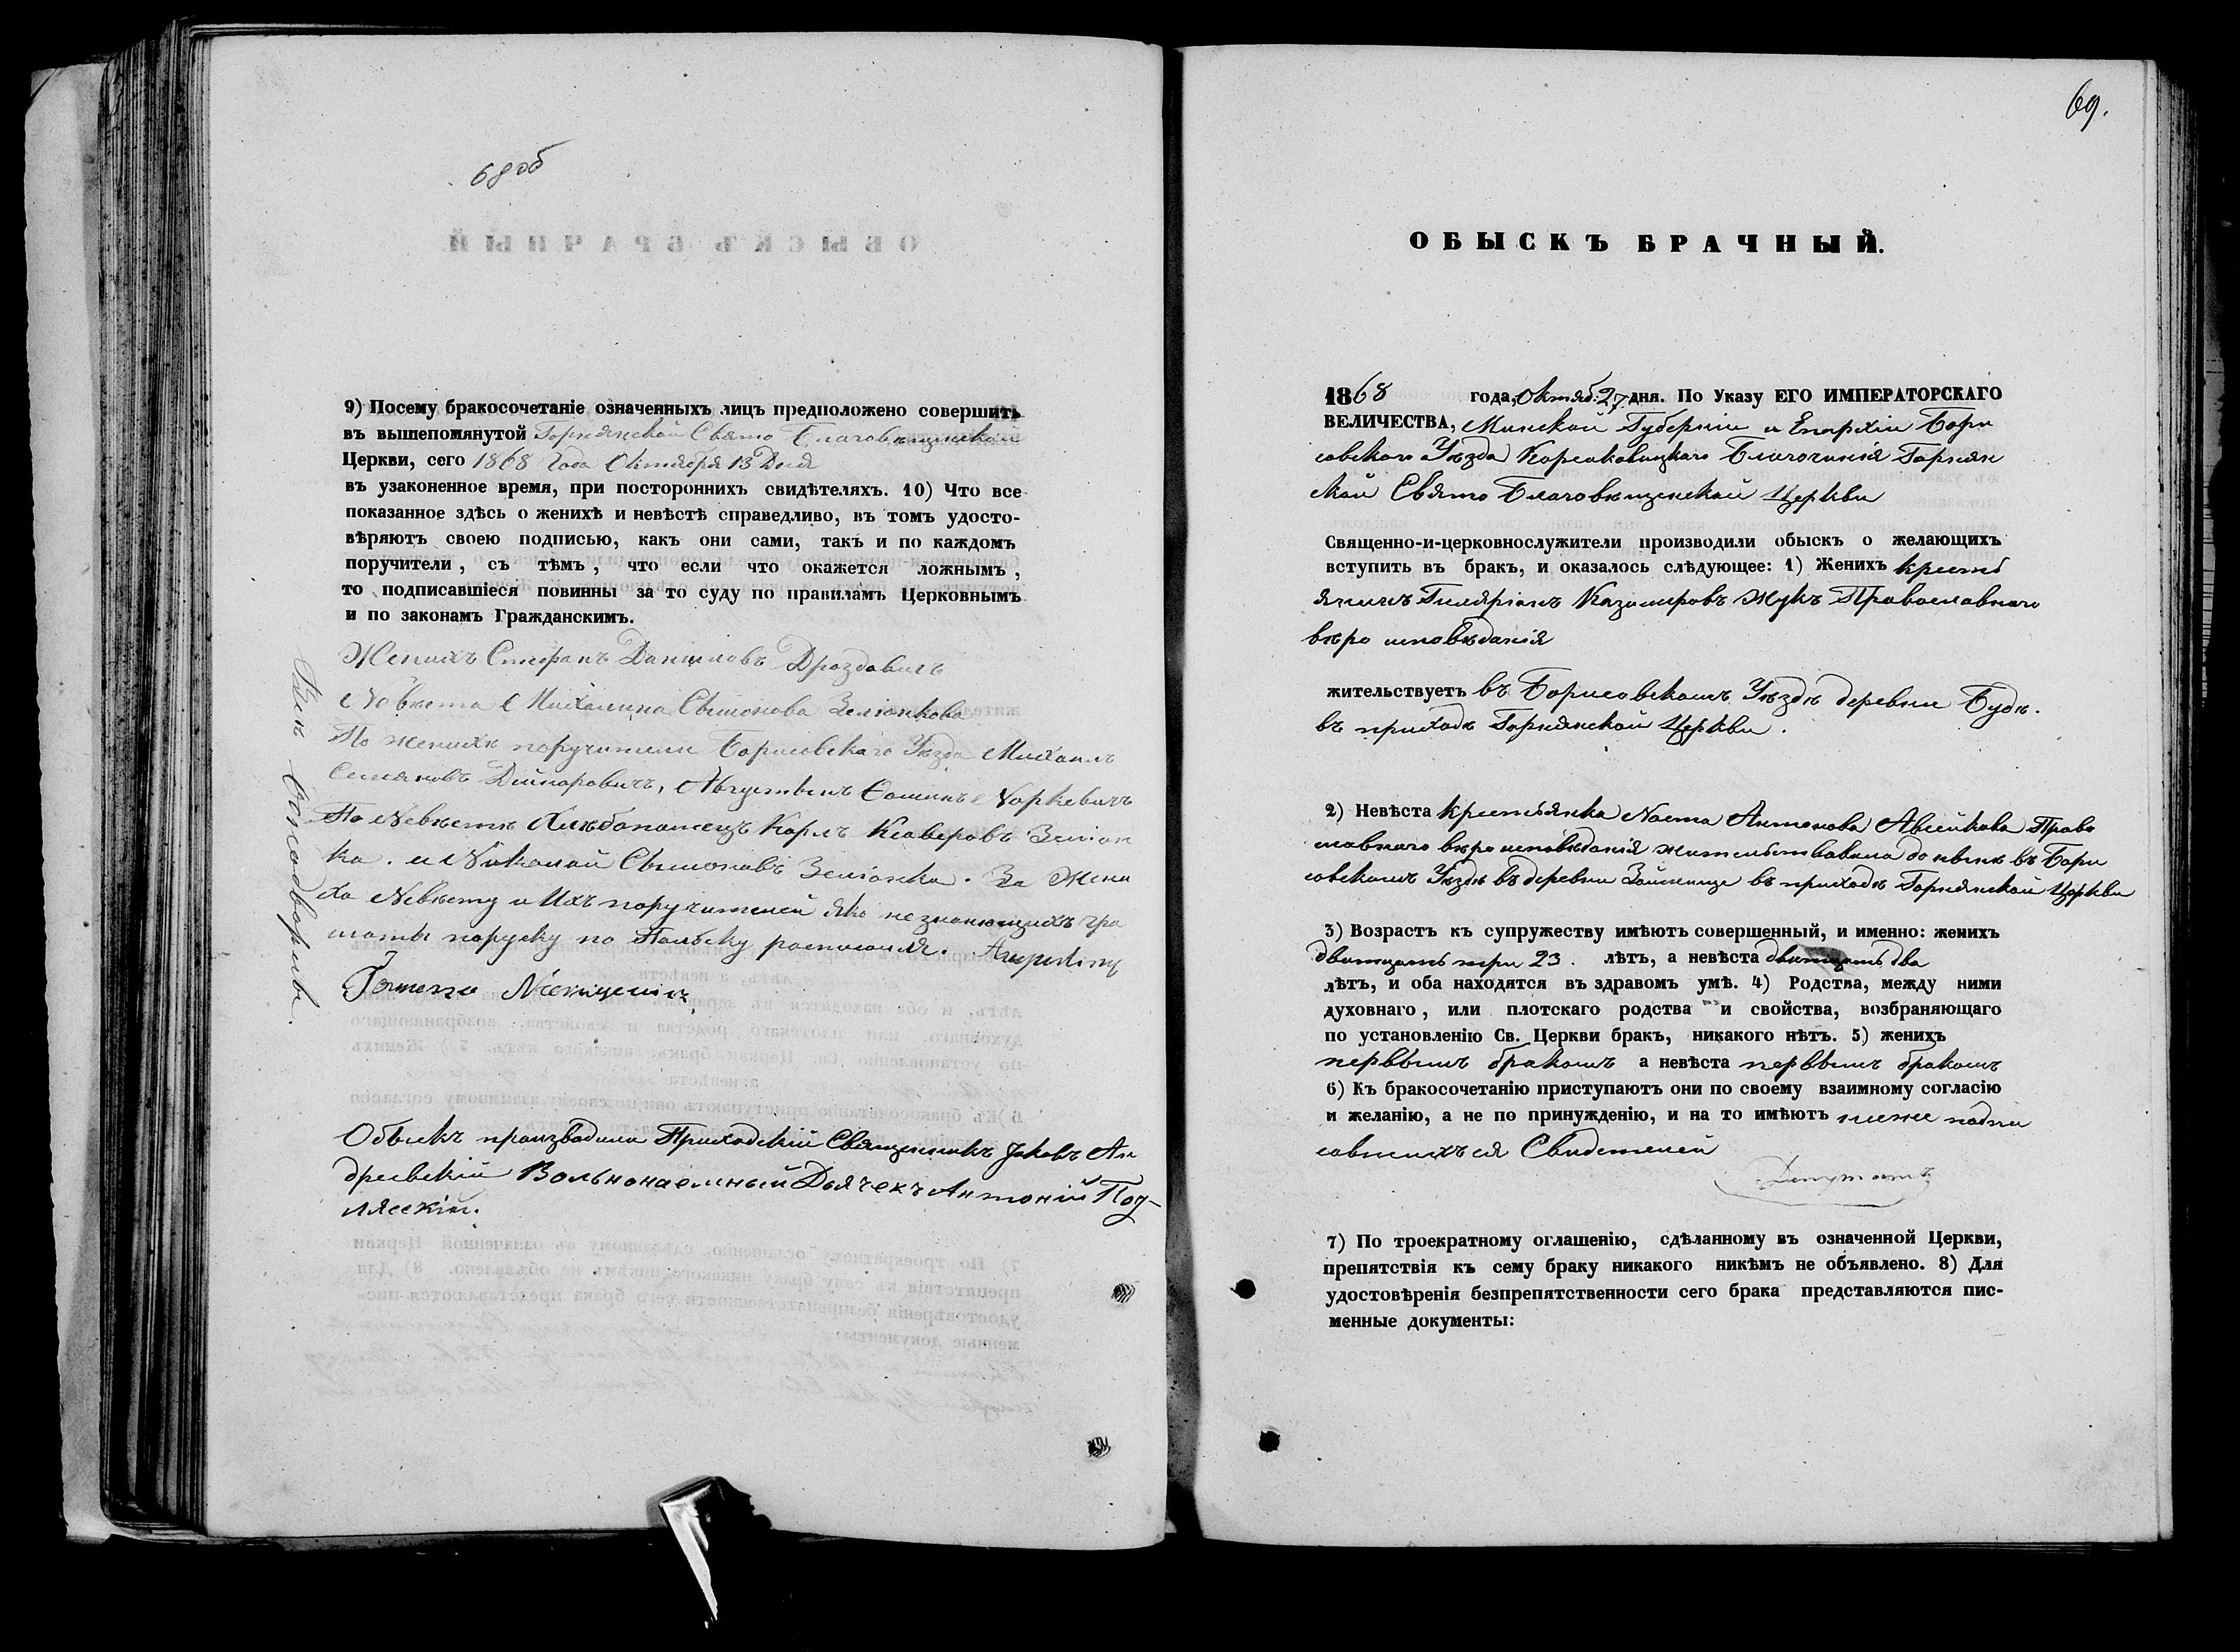 68 об
9) Посему бракосочетаніе означенныхъ лицъ предположено совершить
въ вышепомянутой Горнянской Свято Благовѣщенской
Церкви, сего 1868 Года Октября 13 Дня
въ узаконенное время, при постороннихъ свидѣтеляхъ. 10) Что все
показанное здѣсь о женихѣ и невѣстѣ справедливо, въ томъ удосто-
вѣряютъ своею подписью, какъ они сами, такъ и по каждомъ
поручители, съ тѣмъ, что если что окажется ложнымъ,
то подписавшіеся повинны за то суду по правиламъ Церковнымъ
и по законамъ Гражданскимъ.
Женихъ Стефанъ Даниловъ Драздовичъ
Невѣста Михалина Сымонова Зелюнкова
По женихѣ поручители Борисовскаго Уѣзда Михаилъ
Семяновъ Августынъ Фоминъ Норкевичъ
По Невѣстѣ Хлѣбопашецъ Карлъ Ксаверовъ Зелюн
ка. и Николай Сымоновъ Зелюнка. За Жени
ха Невѣсту и Ихъ поручителей яко незнающихъ гра
моты поруску по Польску росписался. Augustyn
Обыскъ производили Приходскій Священникъ Іаковъ Ан
дреевскій Вольнонаемный Дьячекъ Антоній Под-
лясскій.
69.
ОБЫСКЪ БРАЧНЫЙ.
1868 года, Октяб: 27 дня. По Указу ЕГО ИМПЕРАТОРСКАГО
ВЕЛИЧЕСТВА, Минской Губерніи и Епархіи Бори
совскаго Уѣзда Корсаковицкаго Благочинія Горнян
ской Свято Благовѣщенской Церкви
Священно-и-церковнослужители производили обыскъ о желающихъ
вступить въ бракъ, и оказалось слѣдующее: 1) Женихъ крестъ
янинъ Гиляріонъ Казимировъ Жукъ Православнаго
вѣро исповѣданія
жительствуетъ въ Борисовскомъ Уѣздѣ деревни Будѣ.
въ приходѣ Горнянской Церкви.
2) Невѣста крестьянка Наста Антонова Авсейкова Право
славнаго вѣро исповѣданія жительствовала до нынѣ въ Бори
совскомъ Уѣздѣ въ деревни въ приходѣ Горнянской Церкви
3) Возрастъ къ супружеству имѣютъ совершенный, и именно: женихъ
дватцать три 23. лѣтъ, а невѣста дватцать два
лѣтъ, и оба находятся въ здравомъ умѣ. 4) Родства, между ними
духовнаго, или плотскаго родства и свойства, возбраняющаго
по установленію Св. Церкви бракъ, никакого нѣтъ. 5) женихъ
первымъ бракомъ а невѣста первымъ бракомъ
6) Къ бракосочетанію приступаютъ они по своему взаимному согласію
и желанію, а не по принужденію, и на то имѣютъ ниже подпи
савшихъ ся Свидетелей
7) По троекратному оглашенію, сдѣланному въ означенной Церкви,
препятствія къ сему браку никакого никѣмъ не объявлено. 8) Для
удостовѣренія безпрепятственности сего брака представляются пис-
менные документы: